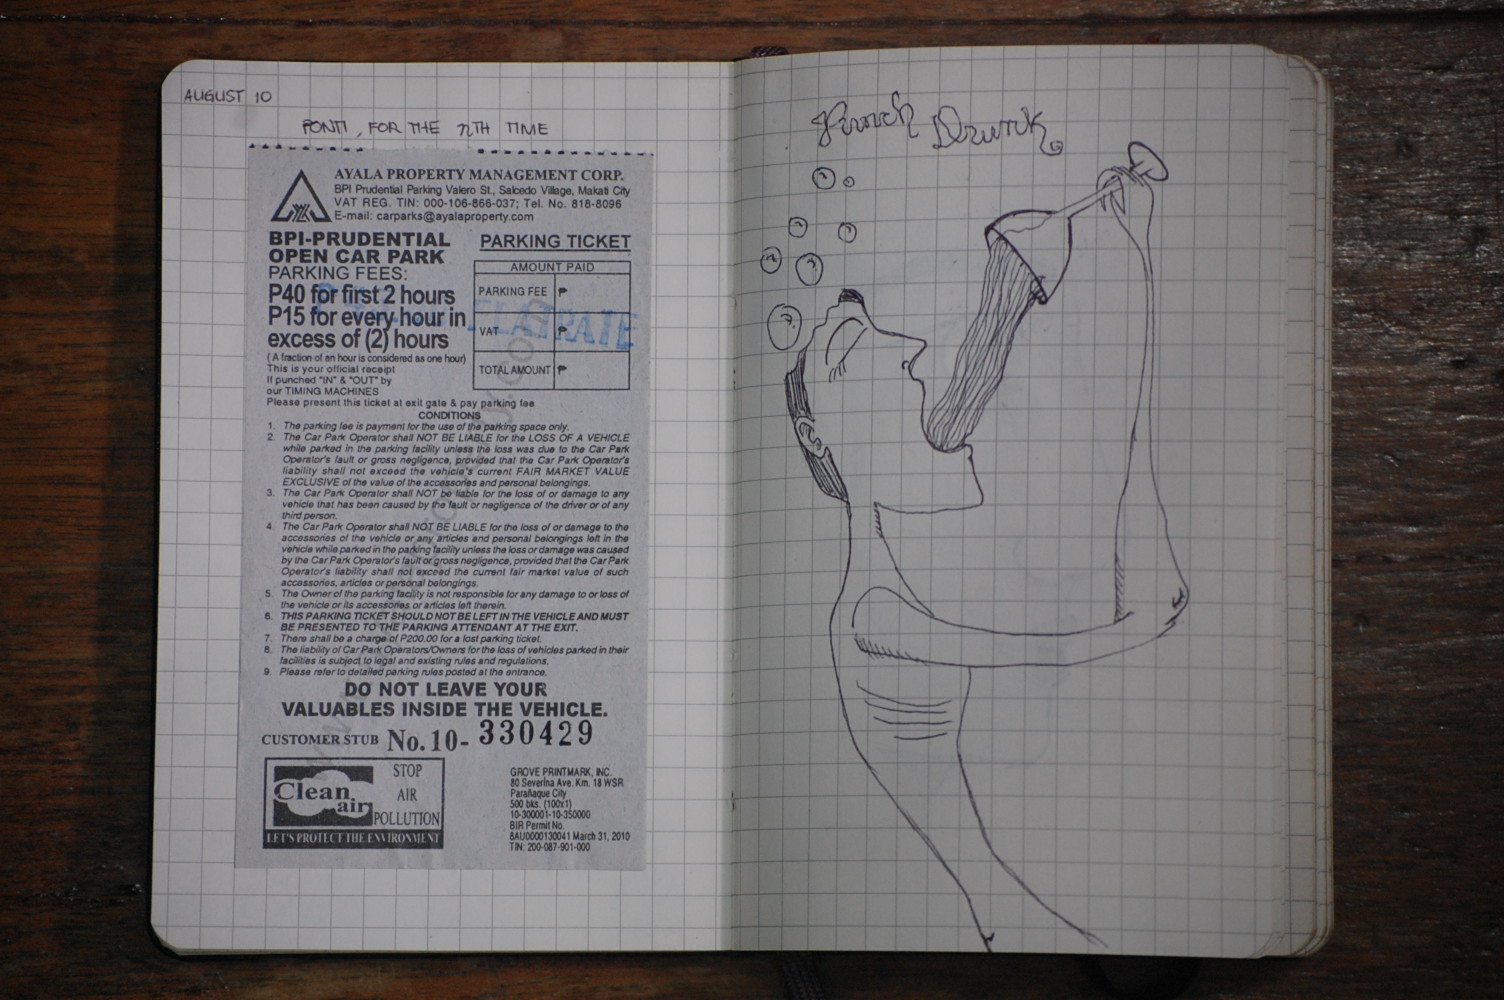 AUGUST 10
PONTI, FOR THE NTH TIME
AYALA PROPERTY MANAGEMENT CORP.
BPI Prudential Parking Valero St., Salcedo Village, Makati City
VAT REG. TIN: 000-106-866-037; Tel. No. 818-8096
E-mail: carparks@ayalaproperty.com
BPI-PRUDENTIAL
OPEN CAR PARK
PARKING FEES:
P40 for first 2 hours
P15 for every hour in
excess of (2) hours
(A fraction of an hour is considered as one hour)
This is your official receipt
If punched "IN" & "OUT" by
our TIMING MACHINES
Please present this ticket at exit gate & pay parking fee
PARKING TICKET
AMOUNT PAID
PARKING FEE ₱
VAT ₱
TOTAL AMOUNT ₱
FLAT RATE
CONDITIONS
1. The parking fee is payment for the use of the parking space only.
2. The Car Park Operator shall NOT BE LIABLE for the LOSS OF A VEHICLE
while parked in the parking facility unless the loss was due to the Car Park
Operator's fault or gross negligence, provided that the Car Park Operator's
liability shall not exceed the vehicle's current FAIR MARKET VALUE
EXCLUSIVE of the value of the accessories and personal belongings.
3. The Car Park Operator shall NOT be liable for the loss of or damage to any
vehicle that has been caused by the fault or negligence of the driver or of any
third person.
4. The Car Park Operator shall NOT BE LIABLE for the loss of or damage to the
accessories of the vehicle or any articles and personal belongings left in the
vehicle while parked in the parking facility unless the loss or damage was caused
by the Car Park Operator's fault or gross negligence, provided that the Car Park
Operator's liability shall not exceed the current fair market value of such
accessories, articles or personal belongings.
5. The Owner of the parking facility is not responsible for any damage to or loss of
the vehicle or its accessories or articles left therein.
6. THIS PARKING TICKET SHOULD NOT BE LEFT IN THE VEHICLE AND MUST
BE PRESENTED TO THE PARKING ATTENDANT AT THE EXIT.
7. There shall be a charge of P200.00 for a lost parking ticket.
8. The liability of Car Park Operators/Owners for the loss of vehicles parked in their
facilities is subject to legal and existing rules and regulations.
9. Please refer to detailed parking rules posted at the entrance.
DO NOT LEAVE YOUR
VALUABLES INSIDE THE VEHICLE.
CUSTOMER STUB No. 10- 330429
Clean air
STOP
AIR
POLLUTION
LET'S PROTECT THE ENVIRONMENT
GROVE PRINTMARK, INC.
80 Severina Ave. Km. 18 WSR
Parañaque City
500 bks. (100x1)
10-300001-10-350000
BIR Permit No.
8AU0000130041 March 31, 2010
TIN: 200-087-901-000
Punch Drunk